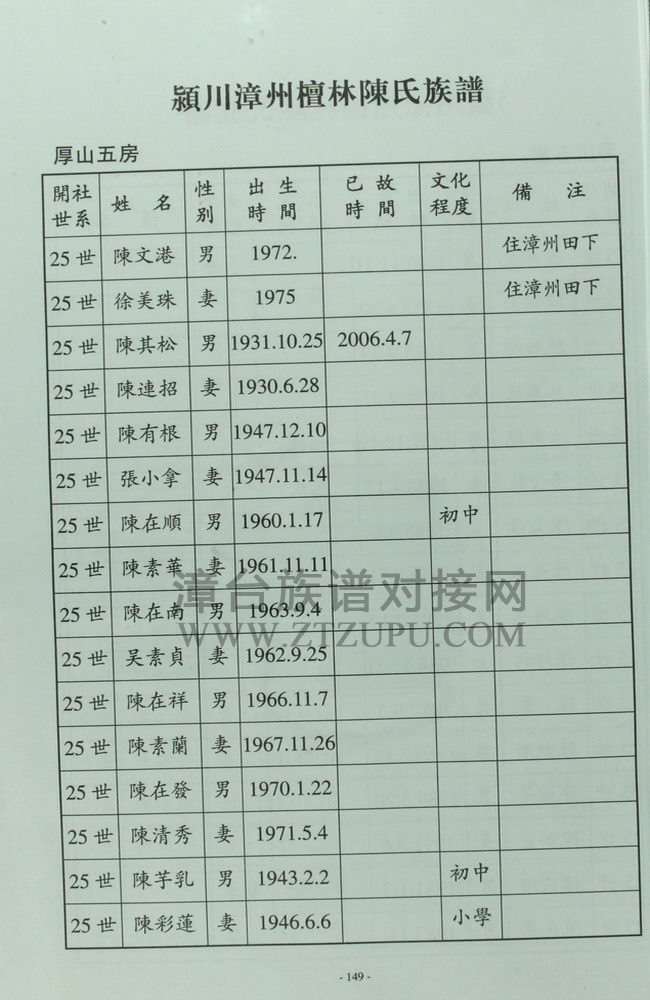 潁川漳州檀林陳氏族譜
厚山五房
開社世系 姓名 性別 出生時間 已故時間 文化程度 備注
25世 陳文港 男 1972. 住漳州田下
25世 徐美珠 妻 1975 住漳州田下
25世 陳其松 男 1931.10.25 2006.4.7
25世 陳連招 妻 1930.6.28
25世 陳有根 男 1947.12.10
25世 張小拿 妻 1947.11.14
25世 陳在順 男 1960.1.17 初中
25世 陳素華 妻 1961.11.11
漳台族谱对接网
25世 陳在南 男 1963.9.4
WWW.ZTZUPU.COM
25世 吴素貞 妻 1962.9.25
25世 陳在祥 男 1966.11.7
25世 陳素蘭 妻 1967.11.26
25世 陳在發 男 1970.1.22
25世 陳清秀 妻 1971.5.4
25世 陳芋乳 男 1943.2.2 初中
25世 陳彩蓮 妻 1946.6.6 小學
- 149 -